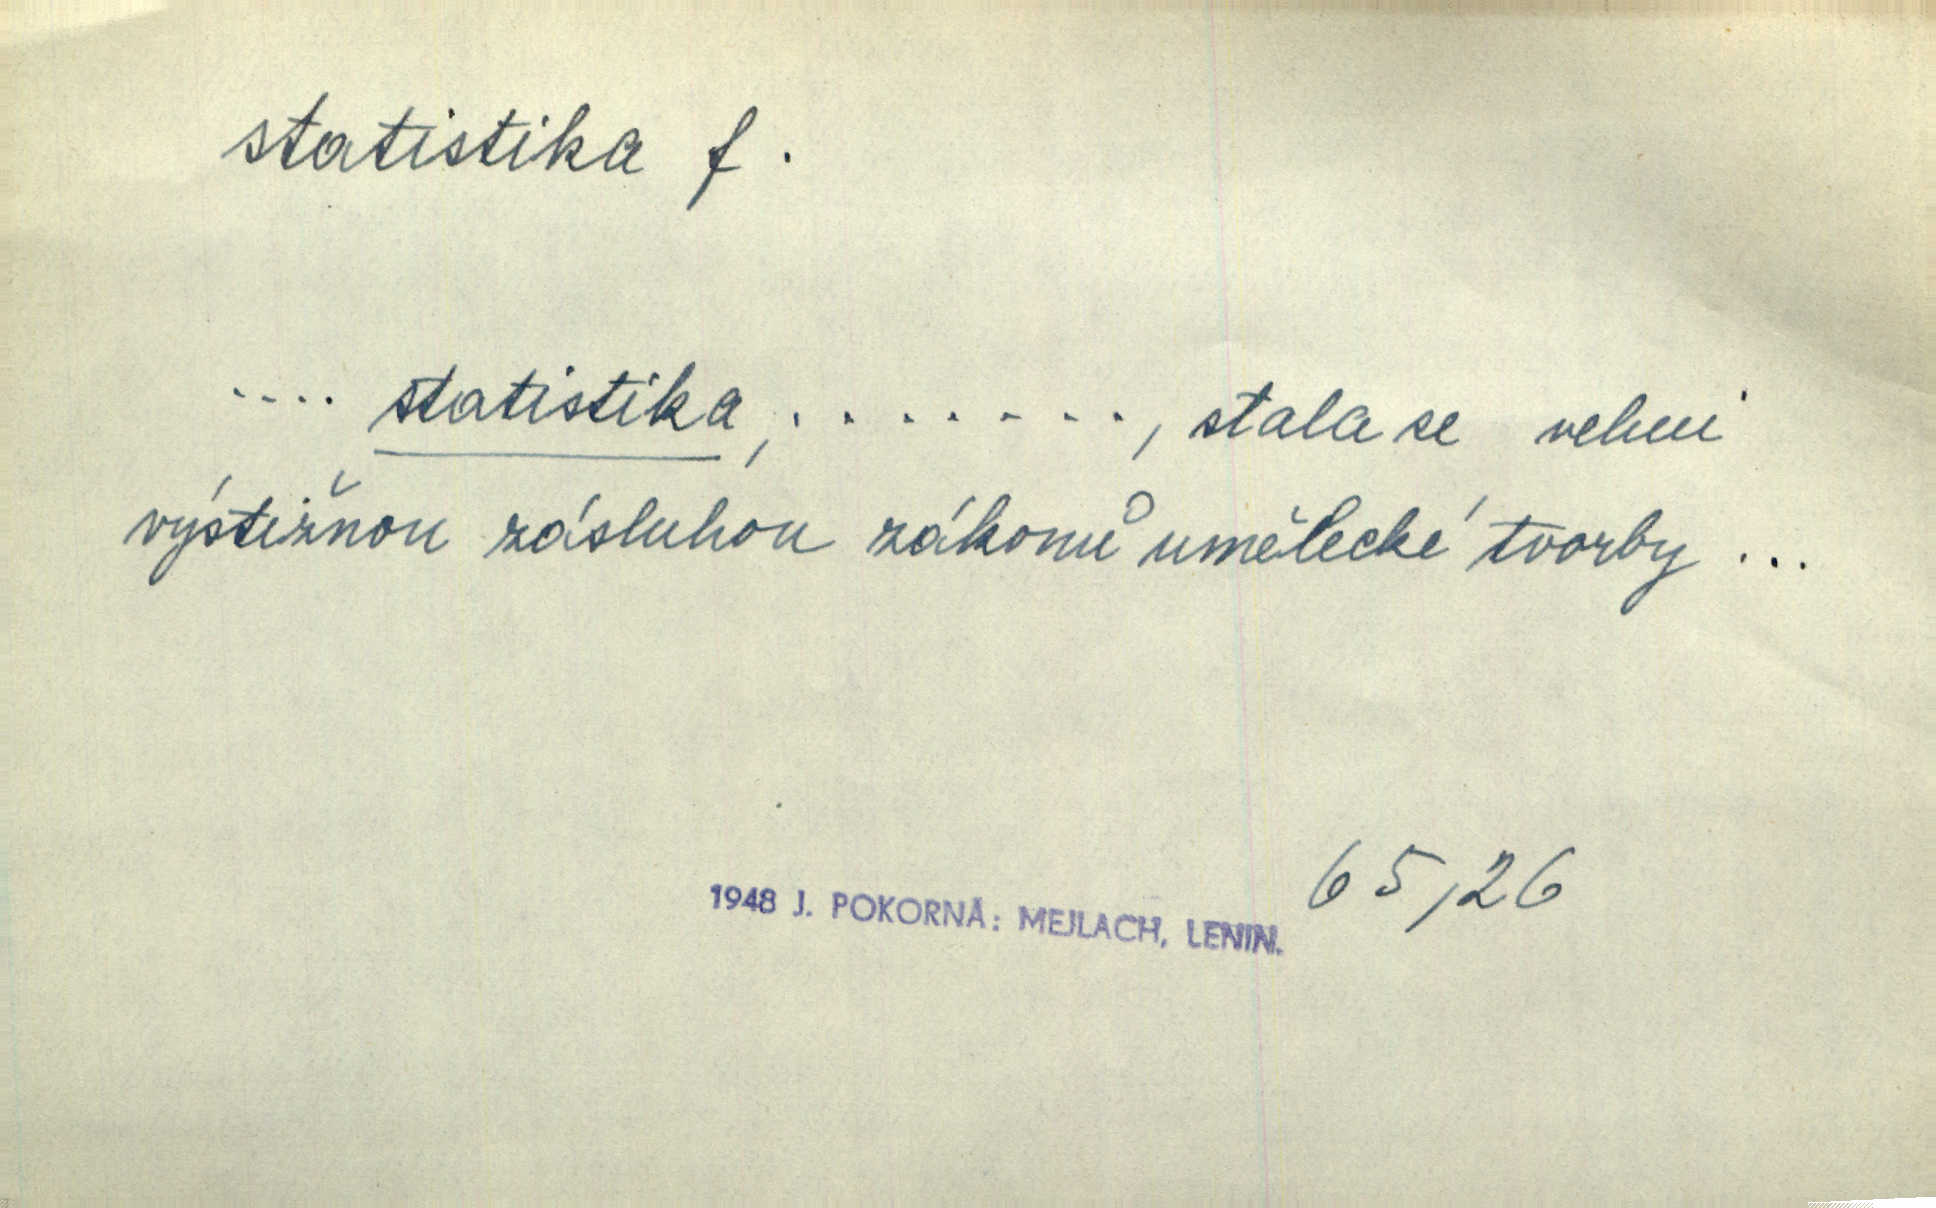 statistika f.
.... statistika, ........, stala se velmi
výstižnou zásluhou zákonů umělecké tvorby ...
65,26
1948 J. POKORNÁ: MEJLACH, LENIN.